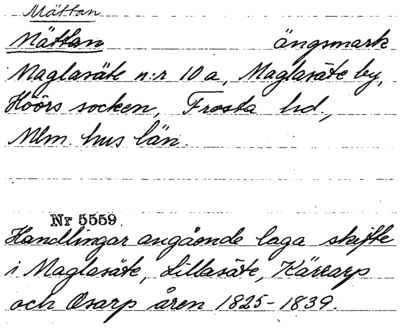 Mättan
Mättan ängsmark
Maglasäte n:r 10 a, Maglasäte by,
Höörs socken, Frosta hd.,
Mlm. hus län.
Nr 5559.
Handlingar angående laga skifte
i Maglasäte, Lillasäte, Kärrarp
och Osarp åren 1825-1839.